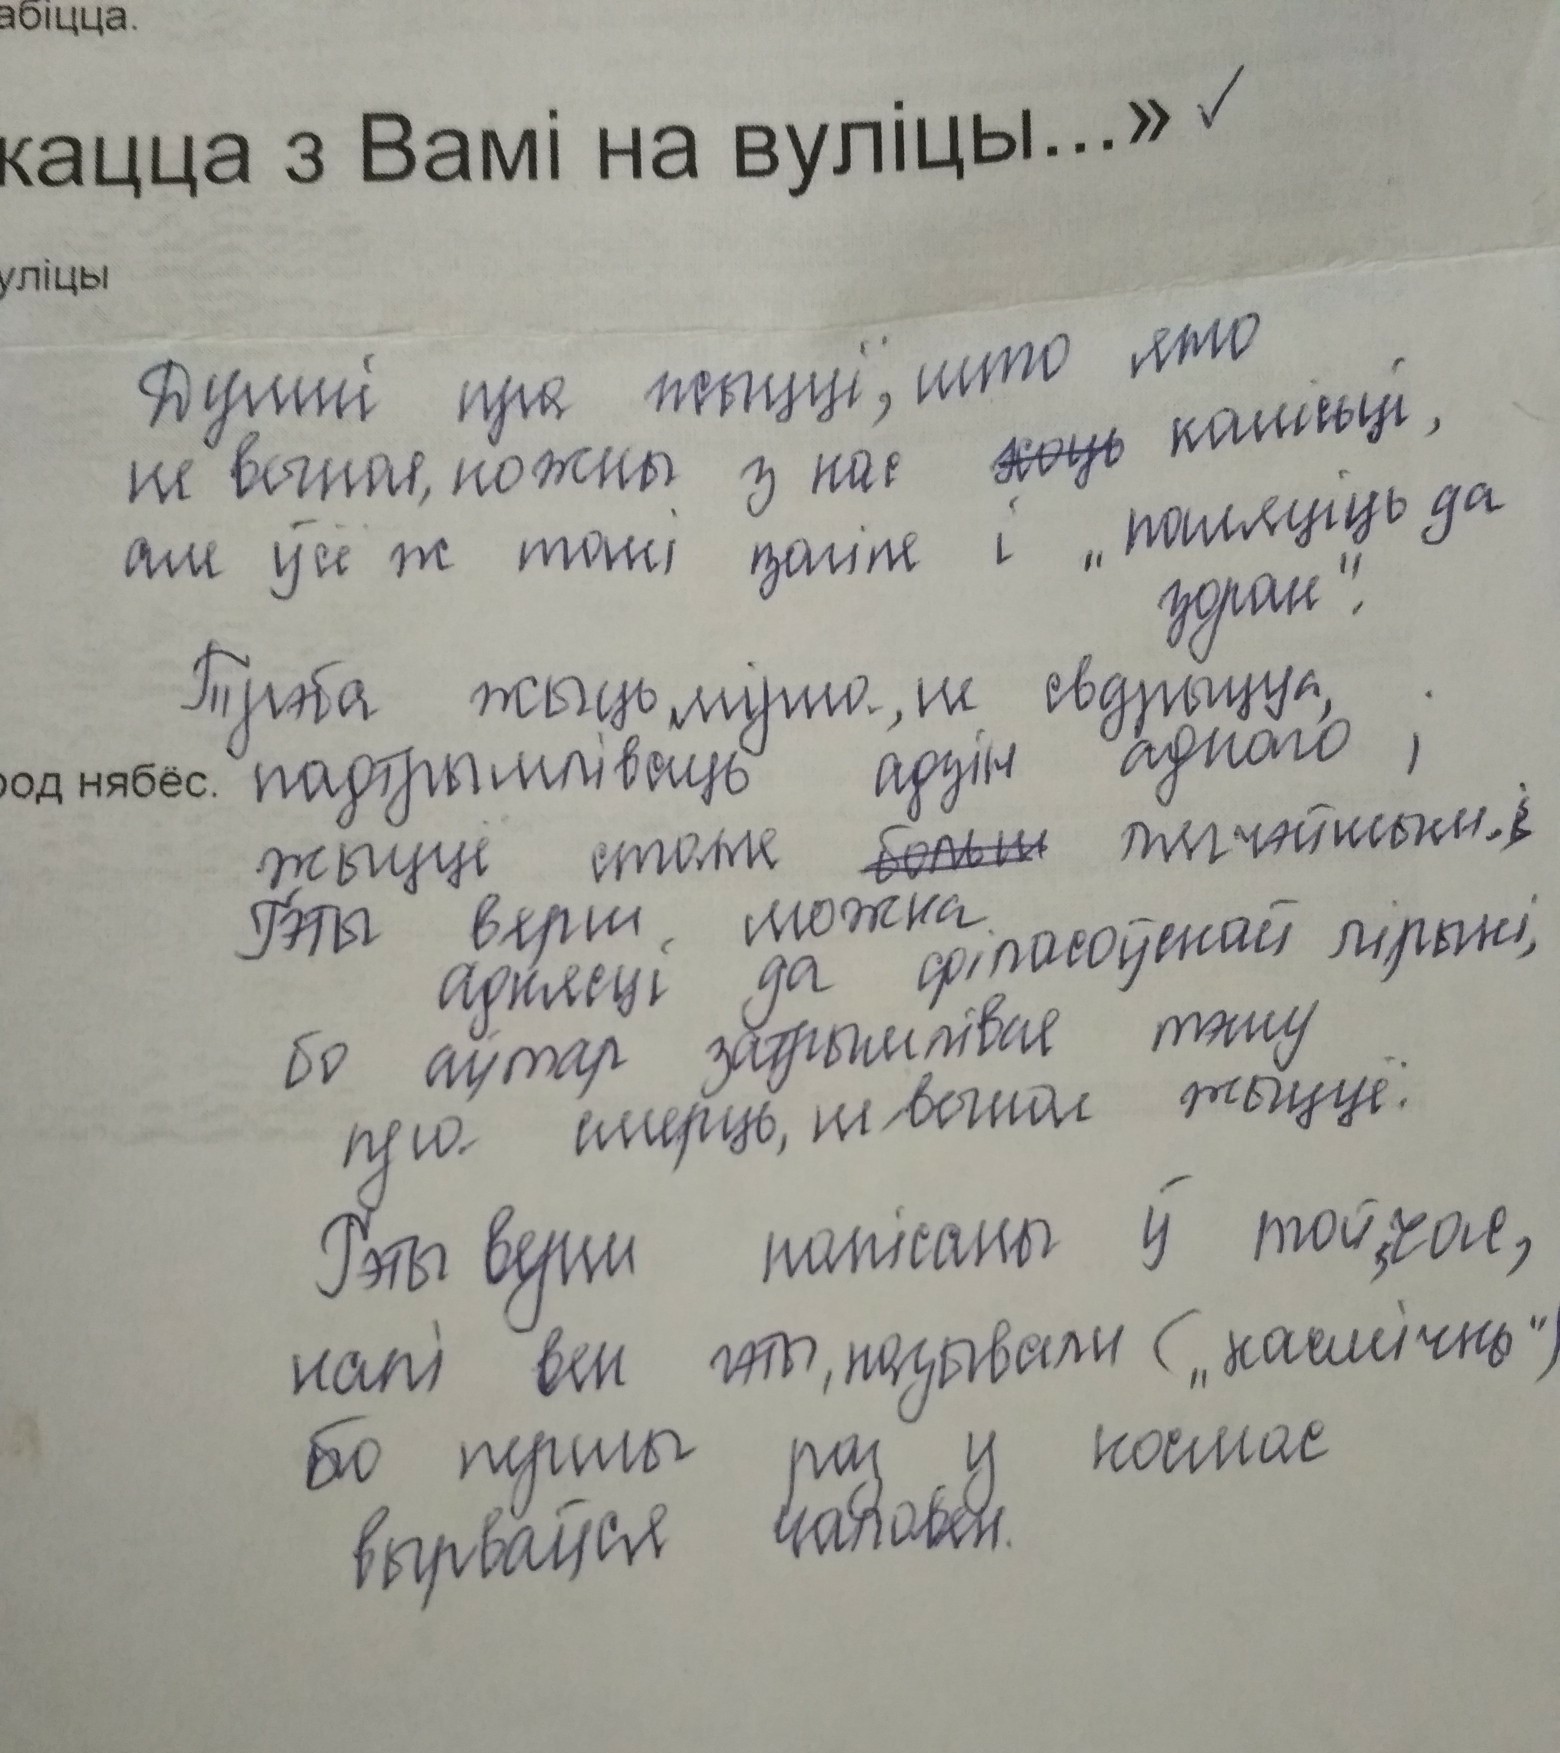 абіцца.
кацца з Вамі на вуліцы...» ✓
уліцы
Думкі пра жыццё, што яно
не вечнае, кожны з нас хоць калісьці,
але ўсё ж такі загіне і „паляціць да
зорак".
Трэба жыць мірна, не сварыцца,
род нябёс. падтрымліваць адзін аднаго і
жыццё стане больш лягчэйшым.
Гэты верш можна
аднясці да філасоўскай лірыкі,
бо аўтар затрымлівае тэму
пра смерць, не вечнае жыццё.
Гэты верш напісаны ў той час,
калі век гэты называлі („касмічны")
бо першы раз у космас
вырваўся чалавек.